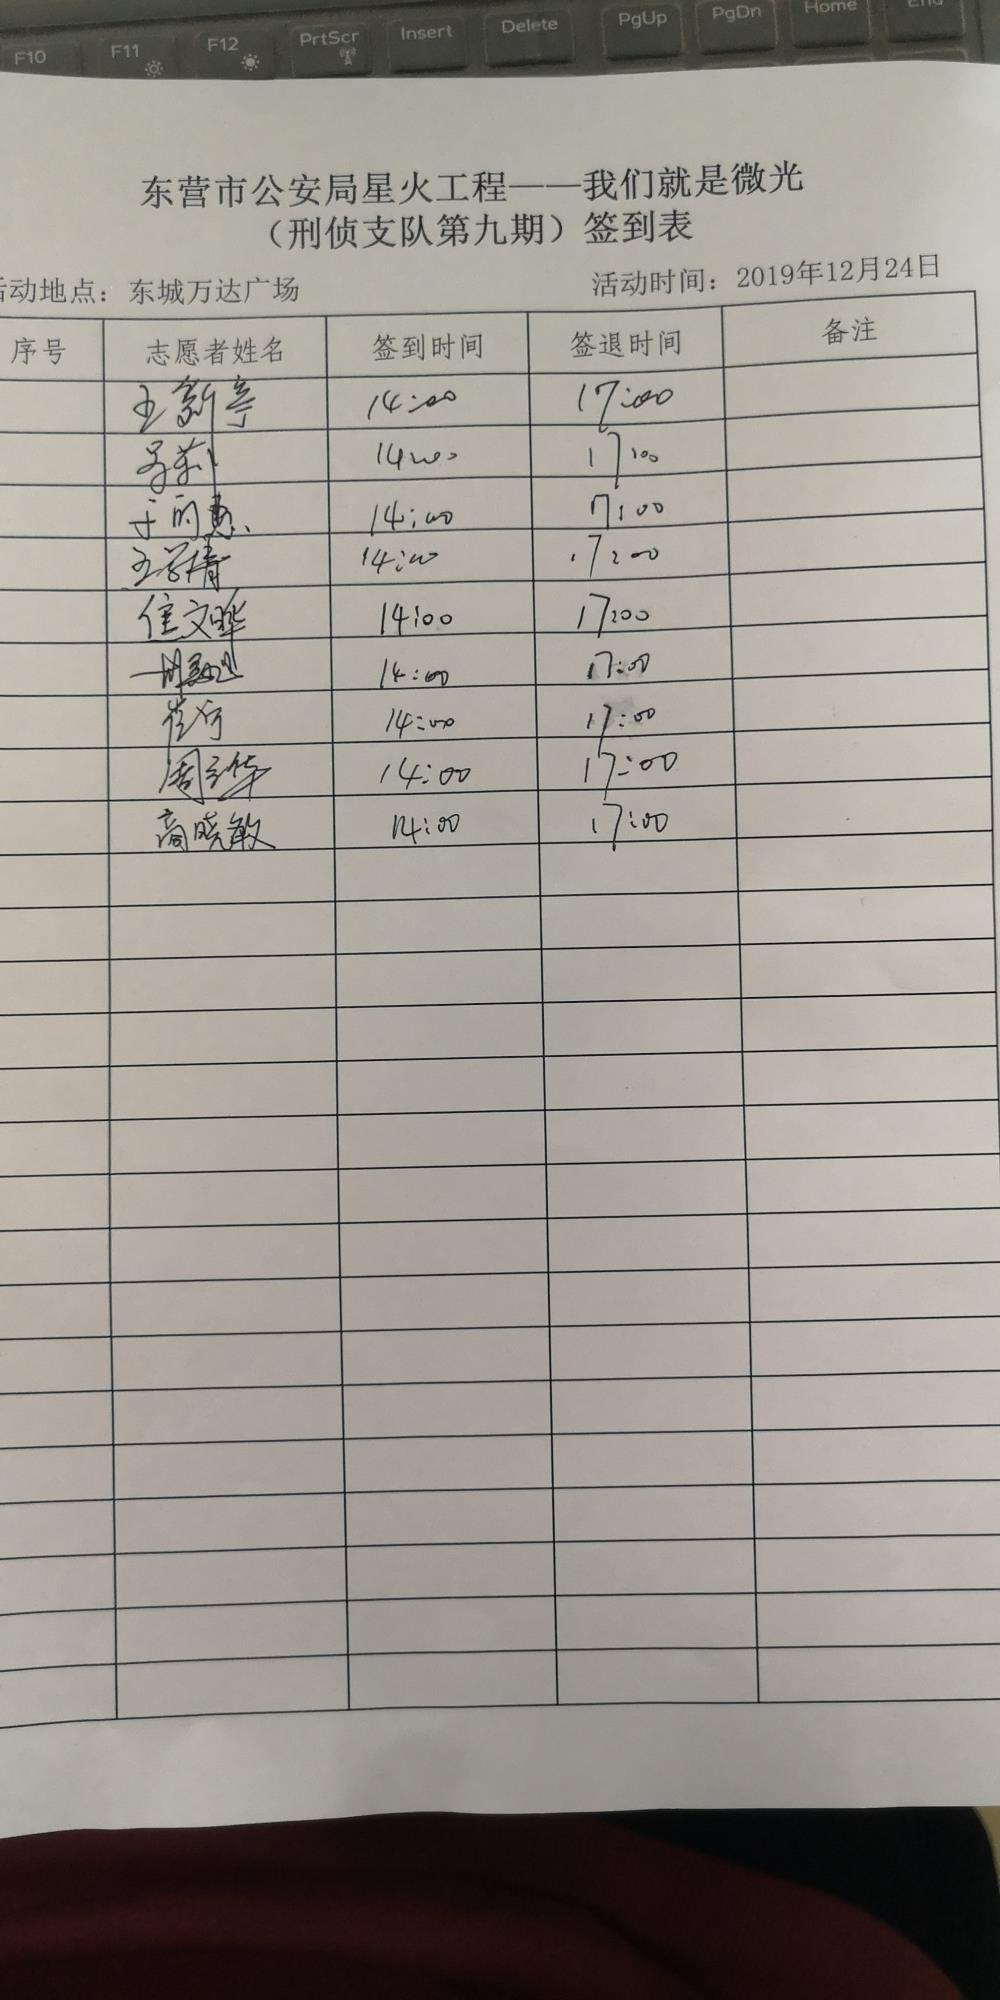 F10 F11 F12 PrtScr Insert Delete PgUp PgDn Home End
东营市公安局星火工程——我们就是微光
（刑侦支队第九期）签到表
活动地点：东城万达广场 活动时间：2019年12月24日
序号 志愿者姓名 签到时间 签退时间 备注
王新亭 14:00 17:00
14:00 17:00
14:00 17:00
14:00 17:00
文晔 14:00 17:00
14:00 17:00
14:00 17:00
周 华 14:00 17:00
高晓敏 14:00 17:00